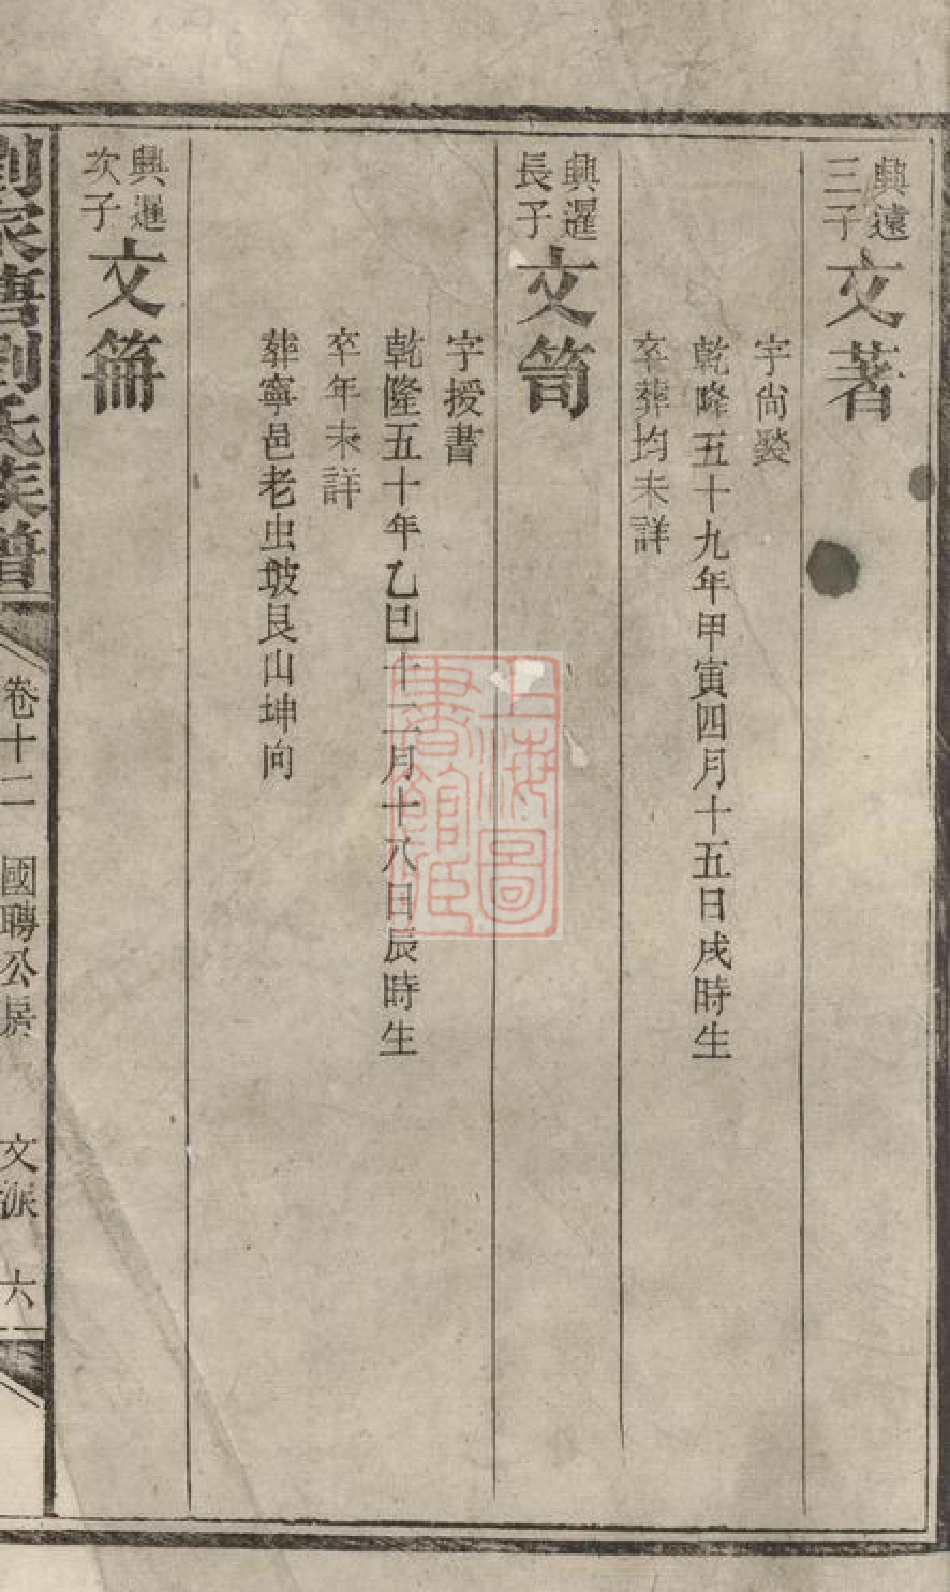 興遠三子 文著
字尚
乾隆五十九年甲寅四月十五日戌時生
卒葬均未詳
興暹長子 文笥
字授書
乾隆五十年乙巳十二月十八日辰時生
卒年未詳
葬寧邑老虫坡艮山坤向
興暹次子 文
劉家塘劉氏族譜
卷十二 國聘公房 文派 六
上海圖書館藏